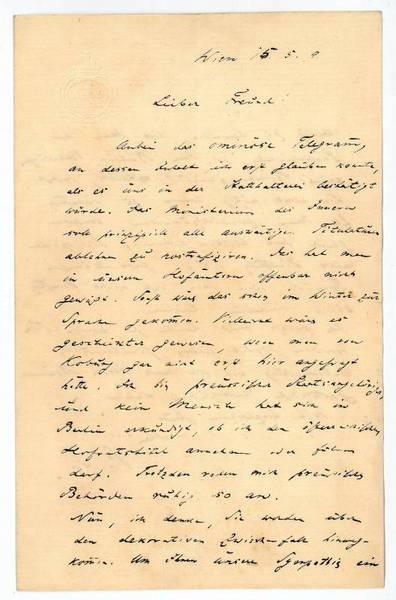 Wien 15 5. 9
Lieber Freund!
Anbei das ominöse Telegramm,
an dessen Inhalt ich erst glauben konnte,
als es uns in der Statthalterei bestätigt
wurde. Das Ministerium des Innern
soll prinzipiell alle auswärtigen Titulaturen
ablehnen zu nostrifizieren. Das hat man
in diesen Hofämtern offenbar nicht
gewußt. Sonst wäre das schon im Winter zur
Sprache gekommen. Vielleicht wäre es
gescheiter gewesen, wenn man von
Koburg gar nicht erst hier angefragt
hätte. Ich bin preussischer Staatsangehöriger,
und kein Mensch hat sich in
Berlin erkundigt, ob ich den österreichischen
annehmen oder führen
darf. Trotzdem reden mich preussische
Behörden ruhig so an.
Nun, ich denke, Sie werden über
den dekorativen Zwischenfall hinweg-
kommen. Um Ihnen unsere Sympathie ein